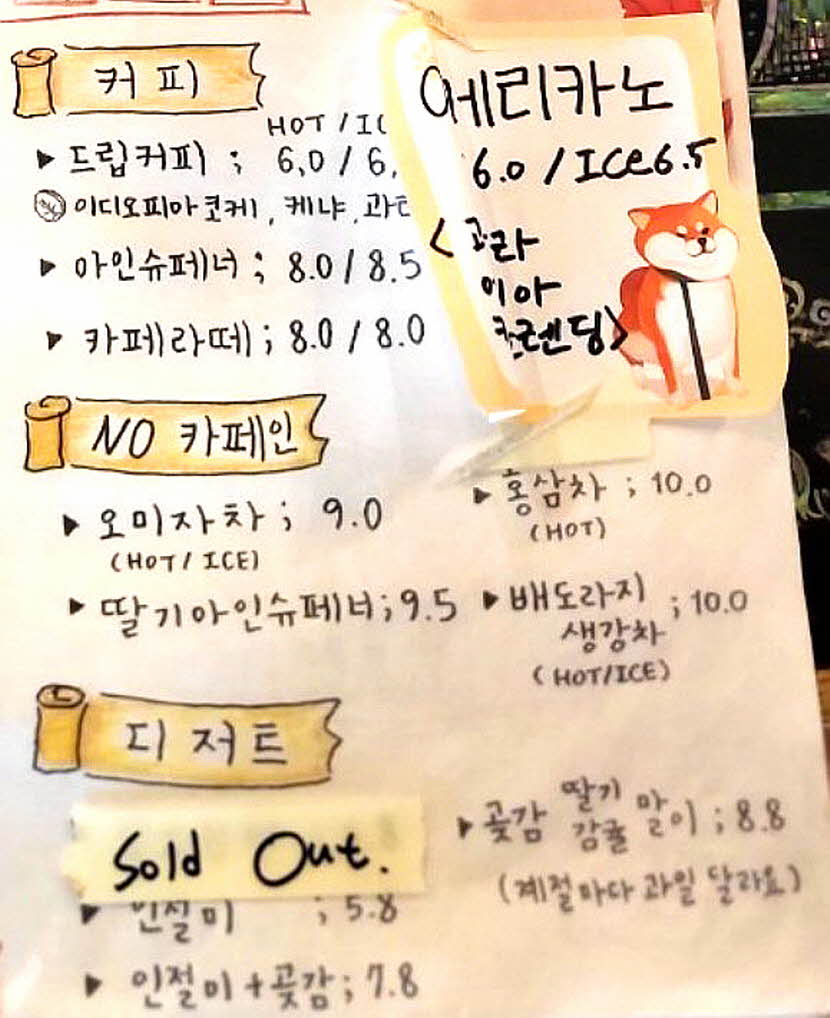 커피
HOT / IC
▶ 드립커피 ; 6.0 / 6.
이디오피아코케, 케냐, 과테
▶ 아인슈페너 ; 8.0 / 8.5
▶ 카페라떼 ; 8.0 / 8.0
아메리카노
6.0 / ICE 6.5
NO 카페인
▶ 오미자차 ; 9.0
(HOT / ICE)
▶ 딸기아인슈페너 ; 9.5
▶ 홍삼차 ; 10.0
(HOT)
▶ 배도라지 ; 10.0
생강차
(HOT/ICE)
디저트
Sold Out.
▶ 인절미 ; 5.8
▶ 인절미+곶감 ; 7.8
▶ 곶감 딸기 감귤 말이 ; 8.8
(계절마다 과일 달라요)